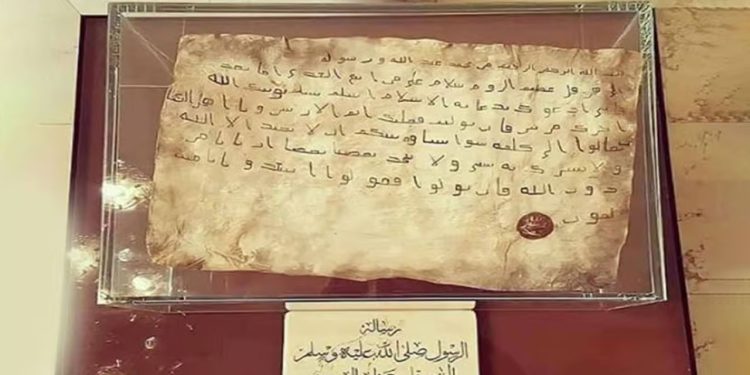 بسم الله الرحمن الرحيم من محمد عبد الله ورسوله
الى هرقل عظيم الروم سلام على من اتبع الهدى اما بعد
فانى ادعوك بدعاية الاسلام اسلم تسلم يوتك الله
اجرك مرتين فان توليت فعليك اثم الاريسين ويا اهل الكتا
تعالوا الى كلمة سوا بيننا وبينكم ان لا نعبد الا الله
ولا نشرك به شيى ولا يتخذ بعضنا بعضا اربابا من
دون الله فان تولوا فقولوا اشهدوا بانا مس
لمون
رسالة
الرسول صلى الله عليه وسلم